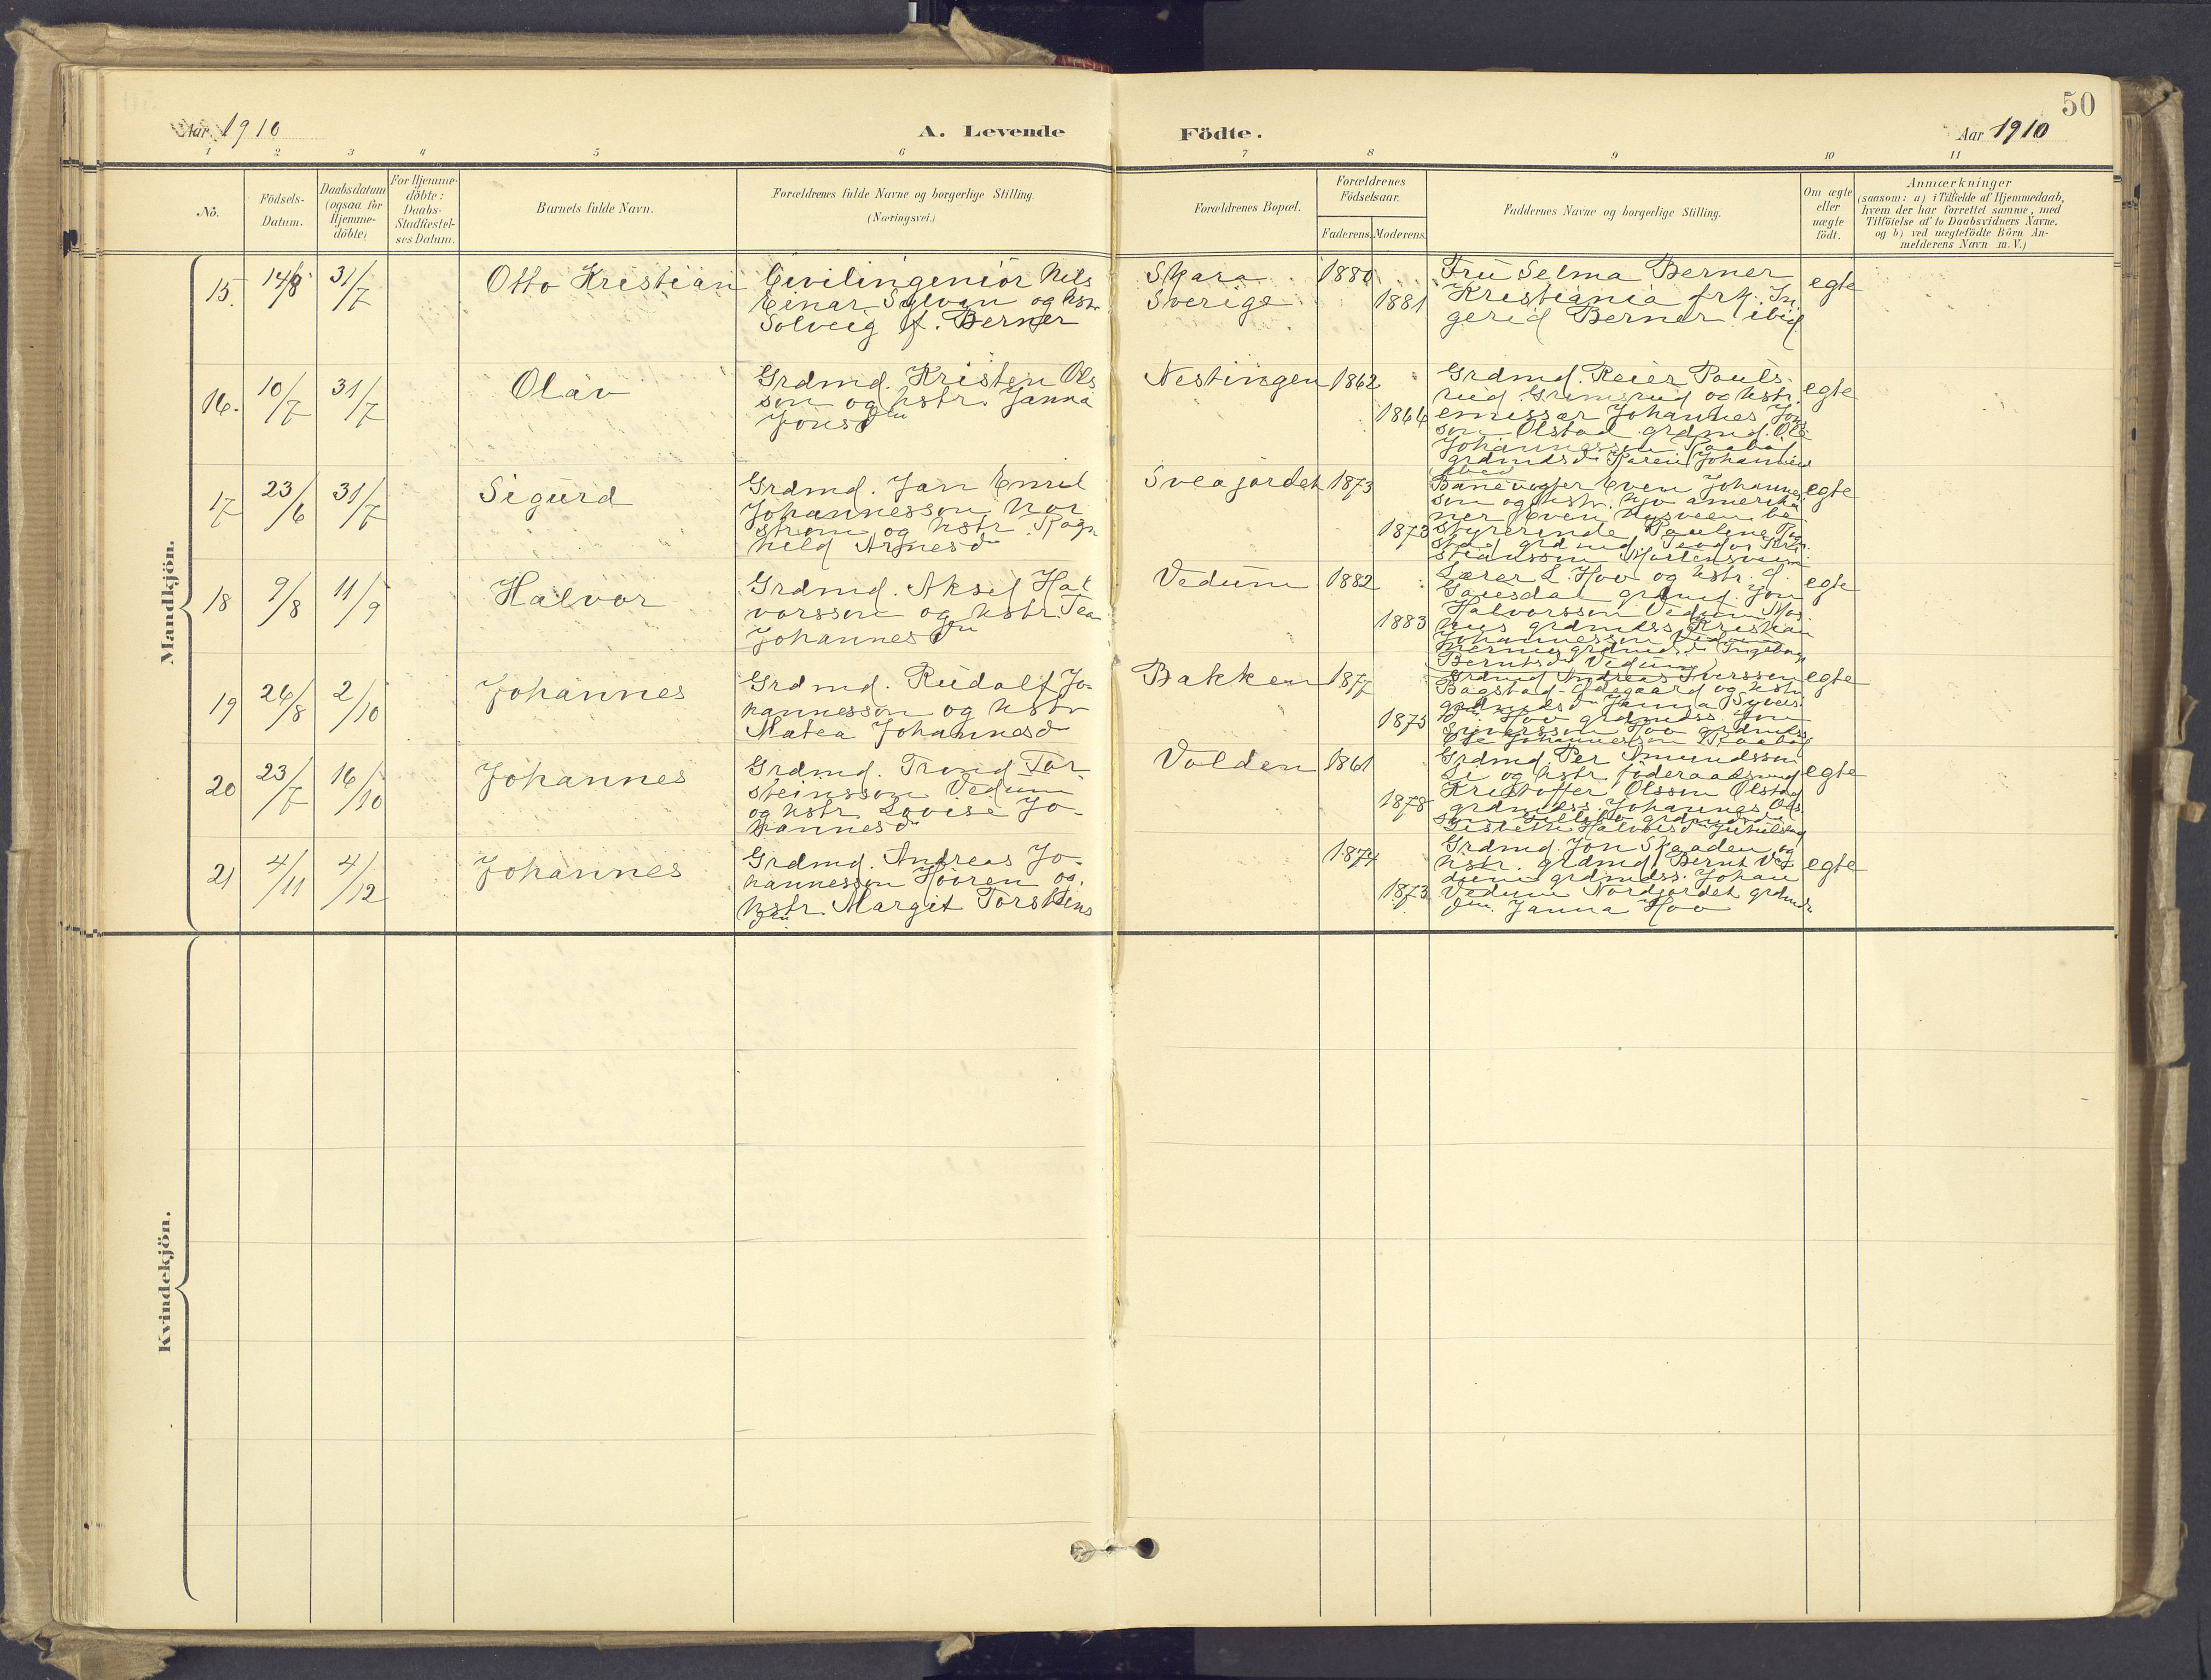 50
Aar 1910
A. Levende Födte.
Aar 1910
1 2 3 4 5 6 7 8 9 10 11
No.
Födsels-
Datum.
Daabsdatum
(ogsaa for
Hjemme-
döbte)
For Hjemme-
döbte:
Daabs-
Stadfæstel-
ses Datum.
Barnets fulde Navn.
Forældrenes fulde Navne og borgerlige Stilling.
(Næringsvei.)
Forældrenes Bopæl.
Forældrenes
Födselsaar.
Faderens. Moderens.
Faddernes Navne og borgerlige Stilling.
Om ægte
eller
uægte
födt.
Anmærkninger
(saasom: a) i Tilfælde af Hjemmedaab,
hvem der har forrettet samme, med
Tilföielse af to Daabsvidners Navne.
og b) ved uægtefödte Börn An-
melderens Navn m.V.)
Mandkjön.
15. 14/8 31/7
Otto Kristian
Civilingeniör Nils
Einar Sylvan og hstr.
Solveig f. Berner
Skara
Sverige
1880
1881
Fru Selma Berner
Kristiania frk. In
gerid Berner ibid
egte
16. 10/7 31/7
Olav
Grdmd. Kristen Ols
son og hstr. Janna
Jonsdtr
Nestingen
1862
1866
Grdmd. Reier Pouls
rud Grimsrud og hstr.
emissær Johannes Jons
son Olstad grdmd. Ole
Johannessen Raabøl
grdmdsdr Karen Johannes
egte
17 23/6 31/7
Sigurd
Grdmd. Jan Emil
Johannesson Nor
strøm og hstr. Ragn
hild Arnesdr
Sveajordet
1873
1873
Banevogter Even Johannes
son og hstr. Njo amerika
ner Even Nysveen be
styrerinde Pauline
stad grdmd. Teodor Kri
stiansson Mortensveen
egte
18 9/8 11/9
Halvor
Grdmd. Aksel Hal
vorsson og hstr. Tea
Johannesdtr
Vedum
1882
1883
Lærer L. Hov og hstr. d.
Gausdal grdmd. Jon
Halvorsson Vedum
grdmdss Kristian
Johannesson Vedum
grdmdsdr Ingeborg
Berntsdr Vedum
egte
19 26/8 2/10
Johannes
Grdmd. Rudolf Jo-
hannesson og hstr
Matea Johannesdr
Bakken
1877
1875
Grdmd Andreas Iversson
Bagstad-Ødegaard og hstr
grdmdsdr Janna Syvers
dtr Hov grdmdss. Jon
Syversson Hov grdmdss
Ole Johannesson Raabøl
egte
20 23/7 16/10
Johannes
Grdmd. Trond Tor
steinsson Vedum
og hstr. Lovise Jo-
hannesdr
Volden
1861
1878
Grdmd. Per Amundsson
Li og hstr føderaadsmd
Kristoffer Olsson Olstad
grdmdss. Johannes Ols
son grdmdsdr
Lisbeth Halvorsdr Jutulstad
egte
21 4/11 4/12
Johannes
Grdmd. Andreas Jo-
hannesson Høiren og
hstr Margit Torsteins
dtr
1874
1873
Grdmd. Jon Skaaden og
hstr. grdmd. Bernt Ve
dum grdmdss. Johan
Vedum Nordjordet grdmds
dtr. Janna Hov
egte
Kvindekjön.